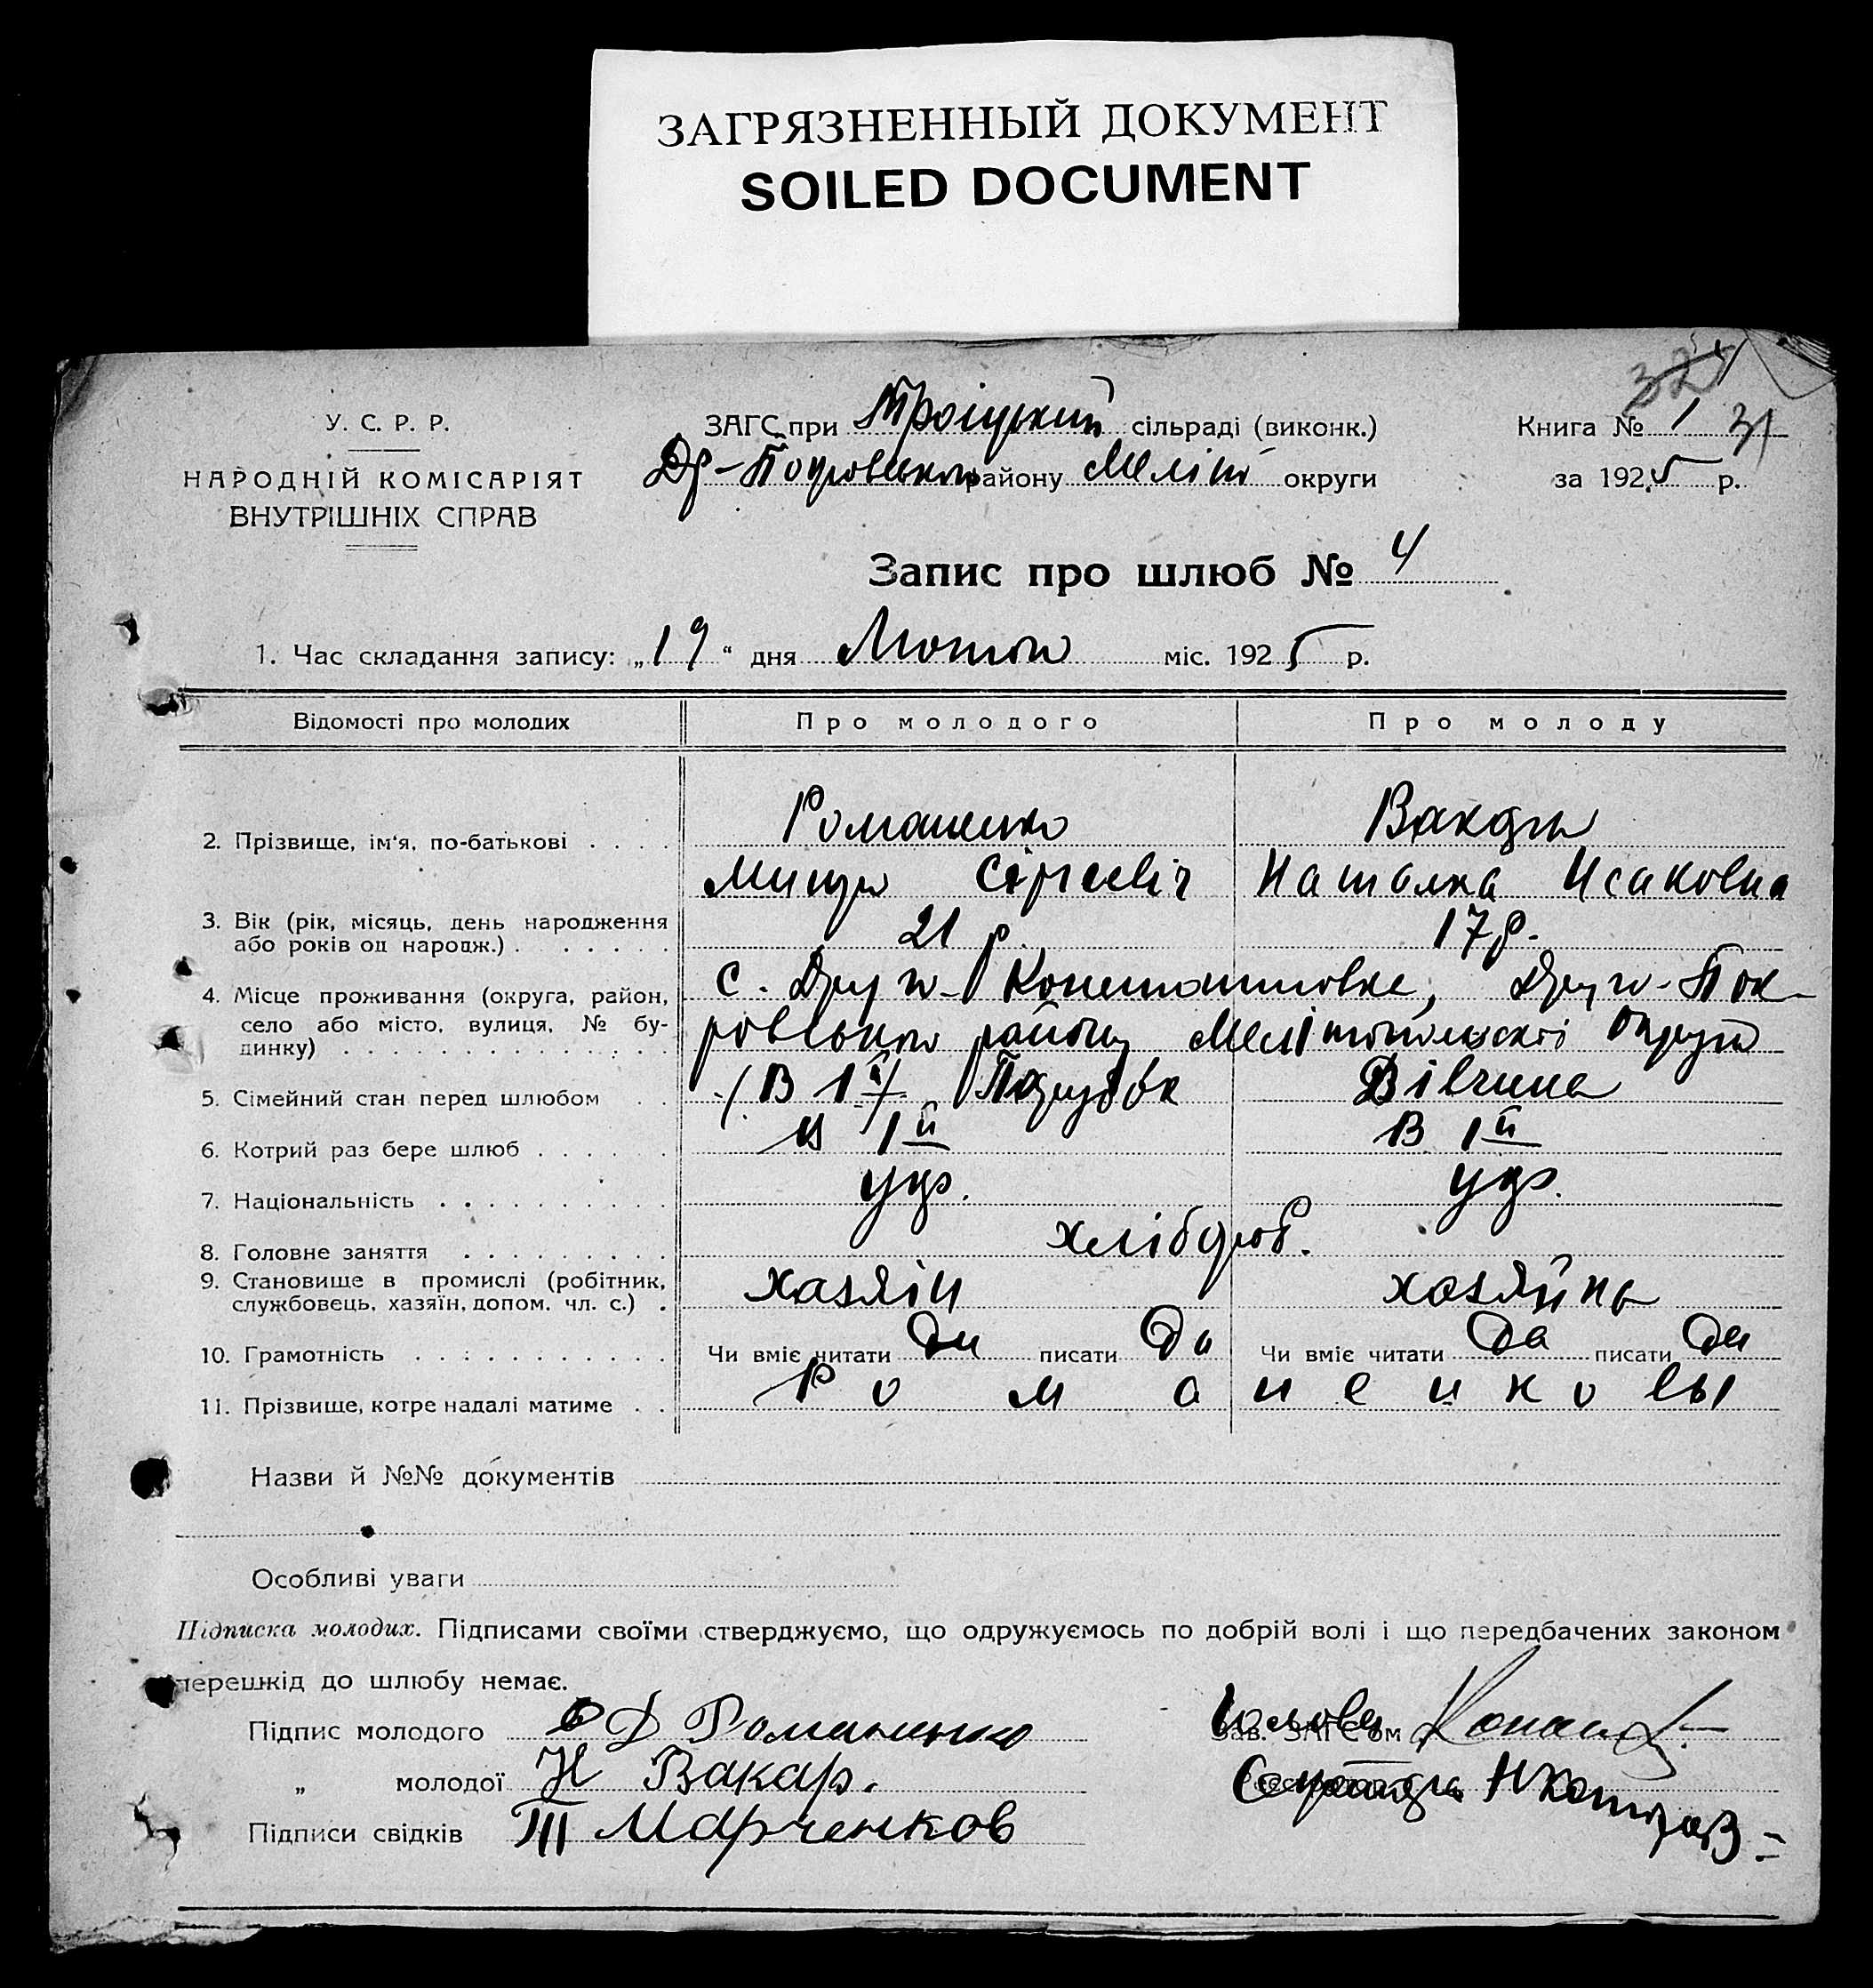 ЗАГРЯЗНЕННЫЙ ДОКУМЕНТ
SOILED DOCUMENT
У. С. Р. Р.
НАРОДНІЙ КОМІСАРІЯТ
ВНУТРІШНІХ СПРАВ
ЗАГС при Троицький сільраді (виконк.)
району Меліт округи
Книга № 1 31
за 1925 р.
Запис про шлюб № 4
1. Час складання запису: „19“ дня Лютого міс. 1925 р.
Відомості про молодих Про молодого Про молоду
2. Прізвище, ім'я, по-батькові . . . . Романенко
Сергіевіч Наталка Исаковна
3. Вік (рік, місяць, день народження
або років од народж.) . . . . . . 21 р. 17 р.
4. Місце проживання (округа, район,
село або місто, вулиця, № бу-
динку) . . . . . . . . . . . . . .
с. Друго-Констонтиновке, Друго-Пок-
ровського району Мелітопольскої Округи
5. Сімейний стан перед шлюбом . . (В 1й) Парубок Дівчина
6. Котрий раз бере шлюб . . . . . . В 1й В 1й
7. Національність . . . . . . . . . . укр. укр.
8. Головне заняття . . . . . . . . . хлібороб.
9. Становище в промислі (робітник,
службовець, хазяїн, допом. чл. с.) . хазяін хазяйка
10. Грамотність . . . . . . . . . . . Чи вміє читати Да писати Да Чи вміє читати Да писати Да
11. Прізвище, котре надалі матиме . . Романенковы
Назви й №№ документів
Особливі уваги
Підписка молодих. Підписами своїми стверджуємо, що одружуємось по добрій волі і що передбачених законом
перешкід до шлюбу немає.
Підпис молодого Д Романенко
Голова
Зав. ЗАГС'ом
„ молодої Н Вакар.
Секретарь
Підписи свідків Марченков